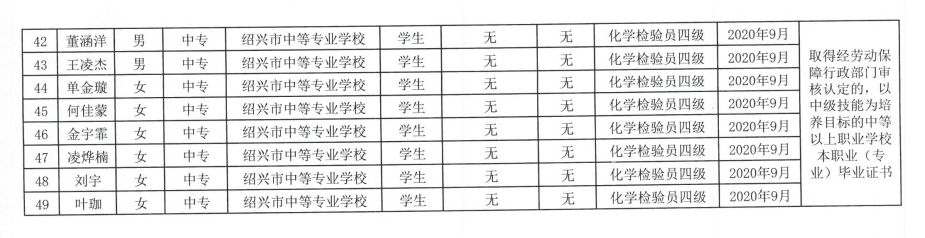 42 董涵洋 男 中专 绍兴市中等专业学校 学生 无 无 化学检验员四级 2020年9月
43 王凌杰 男 中专 绍兴市中等专业学校 学生 无 无 化学检验员四级 2020年9月
44 单金璇 女 中专 绍兴市中等专业学校 学生 无 无 化学检验员四级 2020年9月
45 何佳蒙 女 中专 绍兴市中等专业学校 学生 无 无 化学检验员四级 2020年9月
46 金宇霏 女 中专 绍兴市中等专业学校 学生 无 无 化学检验员四级 2020年9月
47 凌烨楠 女 中专 绍兴市中等专业学校 学生 无 无 化学检验员四级 2020年9月
48 刘宇 女 中专 绍兴市中等专业学校 学生 无 无 化学检验员四级 2020年9月
49 叶珈 女 中专 绍兴市中等专业学校 学生 无 无 化学检验员四级 2020年9月
取得经劳动保
障行政部门审
核认定的，以
中级技能为培
养目标的中等
以上职业学校
本职业（专
业）毕业证书